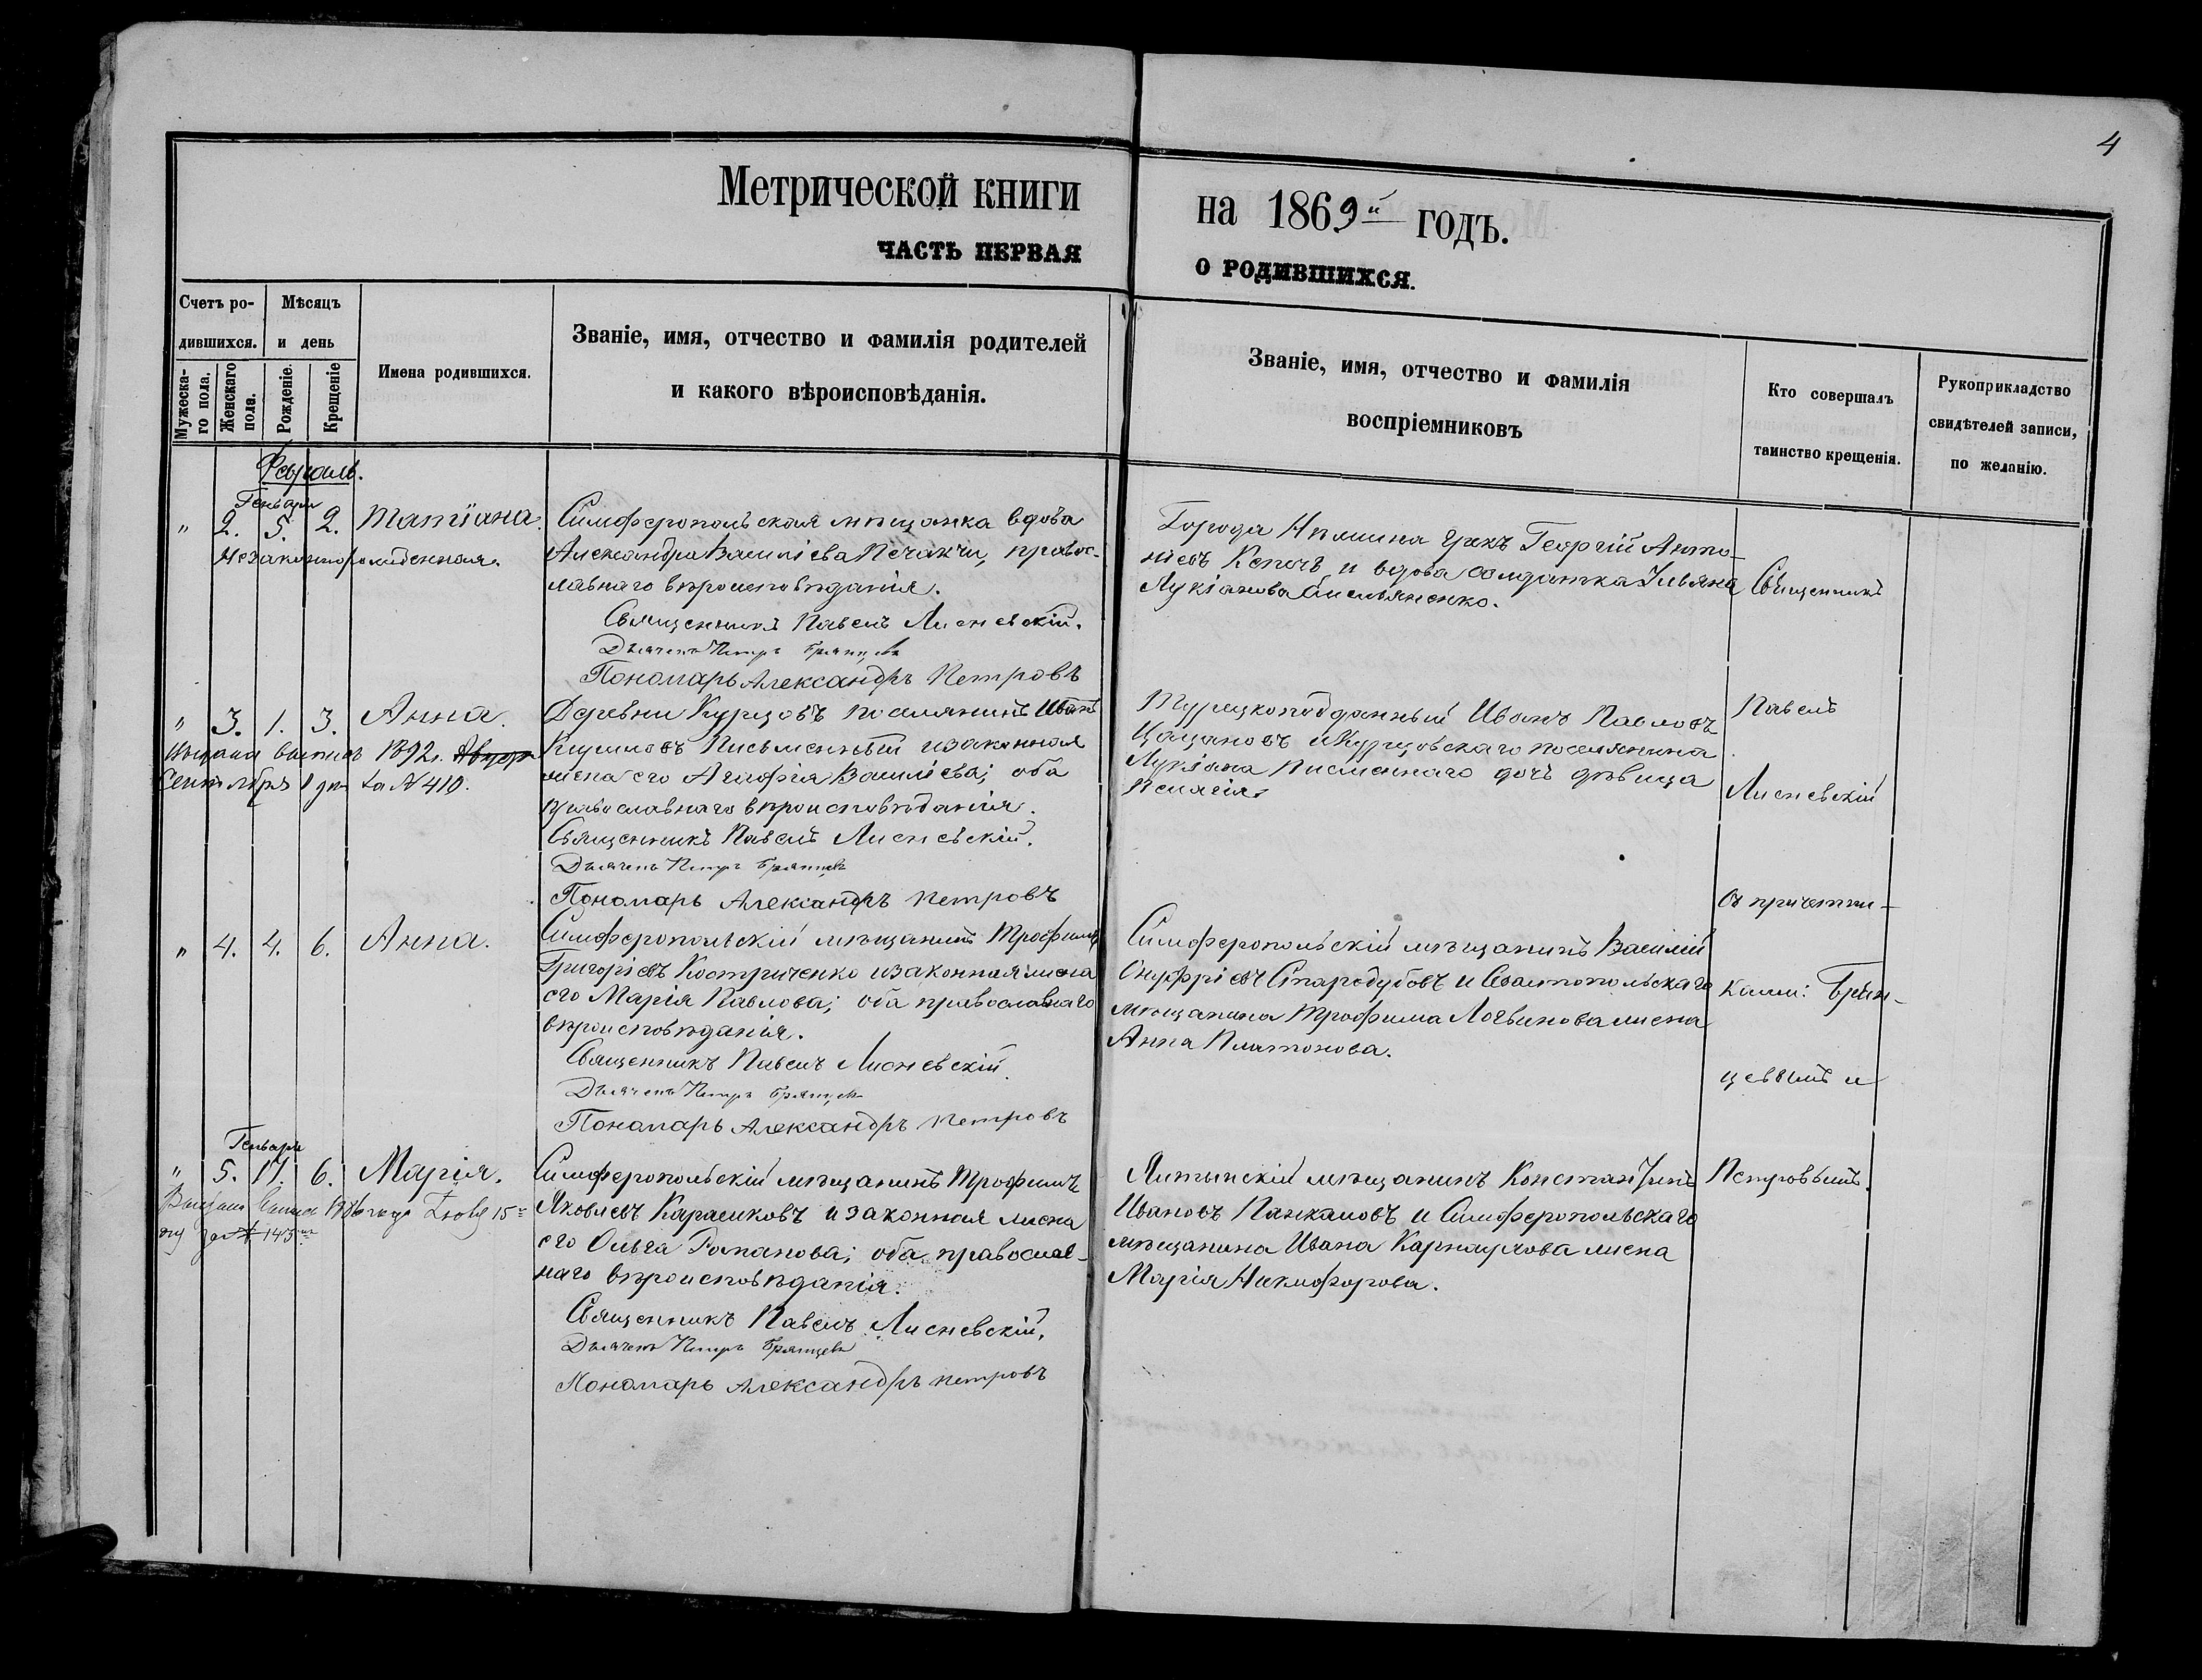 4
Метрической книги на 1869й годъ.
часть первая о родившихся.
Счетъ ро-дившихся.
Мѣсяцъ и день
Мужеска-го пола.
Женскаго пола.
Рожденіе.
Крещеніе
Имена родившихся.
Званіе, имя, отчество и фамилія родителей
и какого вѣроисповѣданія.
Званіе, имя, отчество и фамилія
воспріемниковъ
Кто совершалъ
таинство крещенія.
Рукоприкладство
свидѣтелей записи,
по желанію.
Февраль.
Генваря
" 2. 5. 2. Татіана.
Незаконнорожденная.
Симферопольская мѣщанка вдова
Александра Василіева Печакчи, правос-
лавнаго вѣроисповѣданія.
Священникъ Павелъ Лисневскій.
Дьячекъ Петръ Брянцевъ
Пономарь Александръ Петровъ
Города Нѣжина Грекъ Георгій Анто-
ніевъ Кепечъ и вдова солдатка Ульяна
Лукіанова Емельяненко.
" 3. 1. 3. Анна.
выпись 1892.
Сентября 1 дня за № 410.
Деревни Курцовъ поселянинъ Иванъ
Письменный и законная
жена его Агафія Василіева; оба
православнаго вѣроисповѣданія.
Священникъ Павелъ Лисневскій.
Дьячекъ Петръ Брянцевъ
Пономарь Александръ Петровъ
Турецкоподданный Иванъ Павловъ
Цацановъ и Курцовскаго поселянина
Лукіана Писменнаго дочь дѣвица
Пелагія.
" 4. 4. 6. Анна.
Симферопольскій мѣщанинъ Трофимъ
Григоріевъ Костриченко и законная жена
его Марія Павлова; оба православнаго
вѣроисповѣданія.
Священникъ Павелъ Лисневскій.
Дьячекъ Петръ Брянцевъ
Пономарь Александръ Петровъ
Симферопольскій мѣщанинъ Василій
Онуфріевъ Стародубовъ и Севастопольскаго
мѣщанина Трофима Логвинова жена
Анна Платонова.
Генваря
" 5. 17. 6. Марія.
15
143
Симферопольскій мѣщанинъ Трофимъ
Яковлевъ Карасиковъ и законная жена
его Ольга Романова; оба православ-
наго вѣроисповѣданія.
Священникъ Павелъ Лисневскій.
Дьячекъ Петръ Брянцевъ
Пономарь Александръ Петровъ
Ялтинскій мѣщанинъ Константинъ
Ивановъ Панкаловъ и Симферопольскаго
мѣщанина Ивана Карнаухова жена
Марія Никифорова.
Священникъ
Павелъ
Лисневскій
съ причетни-
ками: Брян-
цевымъ и
Петровымъ.